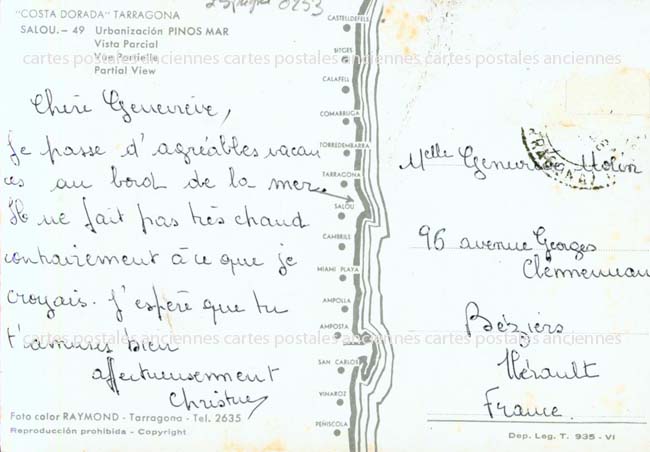 "COSTA DORADA" TARRAGONA
SALOU. - 49 Urbanización PINOS MAR
Vista Parcial
Vue Partielle
Partial View
cartes postales anciennes cartes postales anciennes cartes postales anciennes
Chère Geneviève,
Je passe d'agréables vacan
ces au bord de la mer.
Il ne fait pas très chaud
contrairement à ce que je
croyais. J'espère que tu
t'amuses bien
affectueusement
Foto color RAYMOND - Tarragona - Tel. 2635
Reproducción prohibida - Copyright
CASTELLDEFELS
SITGES
CALAFELL
COMARRUGA
TORREDEMBARRA
TARRAGONA
SALOU
CAMBRILS
MIAMI PLAYA
AMPOLLA
AMPOSTA
SAN CARLOS
VINAROZ
PEÑISCOLA
Melle Geneviève Molin
96 avenue Georges
Clémenceau
Béziers
Hérault
France.
cartes postales anciennes cartes postales anciennes cartes postales anciennes
Dep. Leg. T. 935 - VI